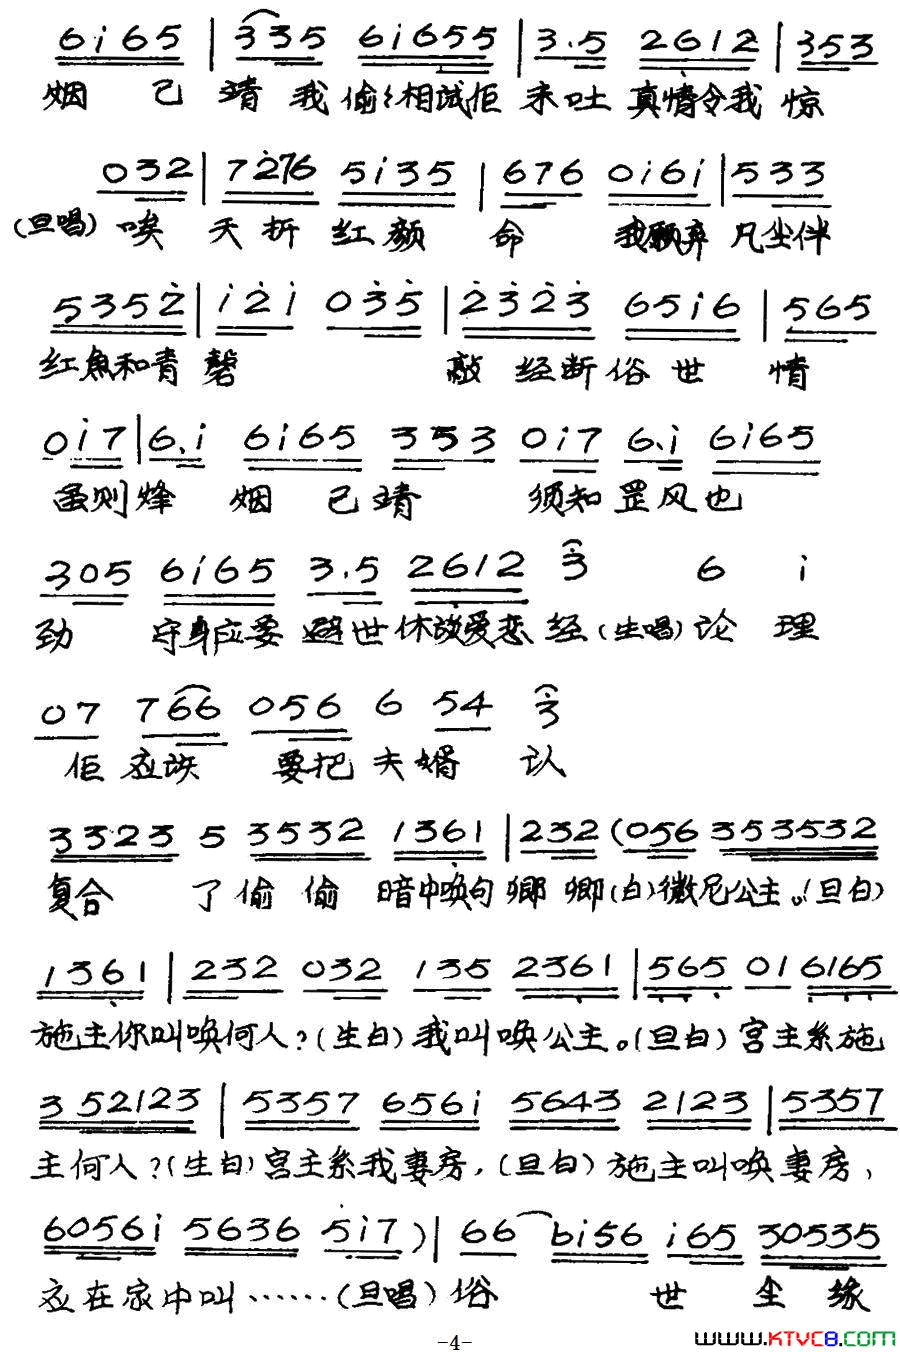 6i65 | 335 6i655 | 3.5 2612 | 353
烟 己 靖 我 偷々相試佢 未吐 真情令我 惊
032 | 7276 5i35 | 676 0i6i | 533
(旦唱) 唉 夭折 红颜 命 我願弃 凡尘伴
5352 | i2i 035 | 2323 65i6 | 565
红魚和青磬 敲 经断俗世 情
0i7 | 6.i 6i65 353 0i7 6.i 6i65
虽则烽 烟 已靖 须知罡风也
305 6i65 3.5 2612 3 6 i
劲 守身应要 避世休談爱恋 经(生唱)论 理
07 766 056 6 54 3
佢应该 要把夫婿 认
3323 5 3532 1361 | 232 (056 353532
复合 了偷偷 暗中唤句卿卿(白)徽尼公主。(旦白)
1361 | 232 032 135 2361 | 565 01 6165
施主你叫唤何人?(生白)我叫唤公主。(旦白)宫主系施
352123 | 5357 656i 5643 2123 | 5357
主何人?(生白)宫主系我妻房,(旦白)施主叫唤妻房,
6056i 5636 5i7) | 66 6i56 i65 30535
应在家中叫……(旦唱)俗 世 尘 缘
-4-
www.KTVC8.COM